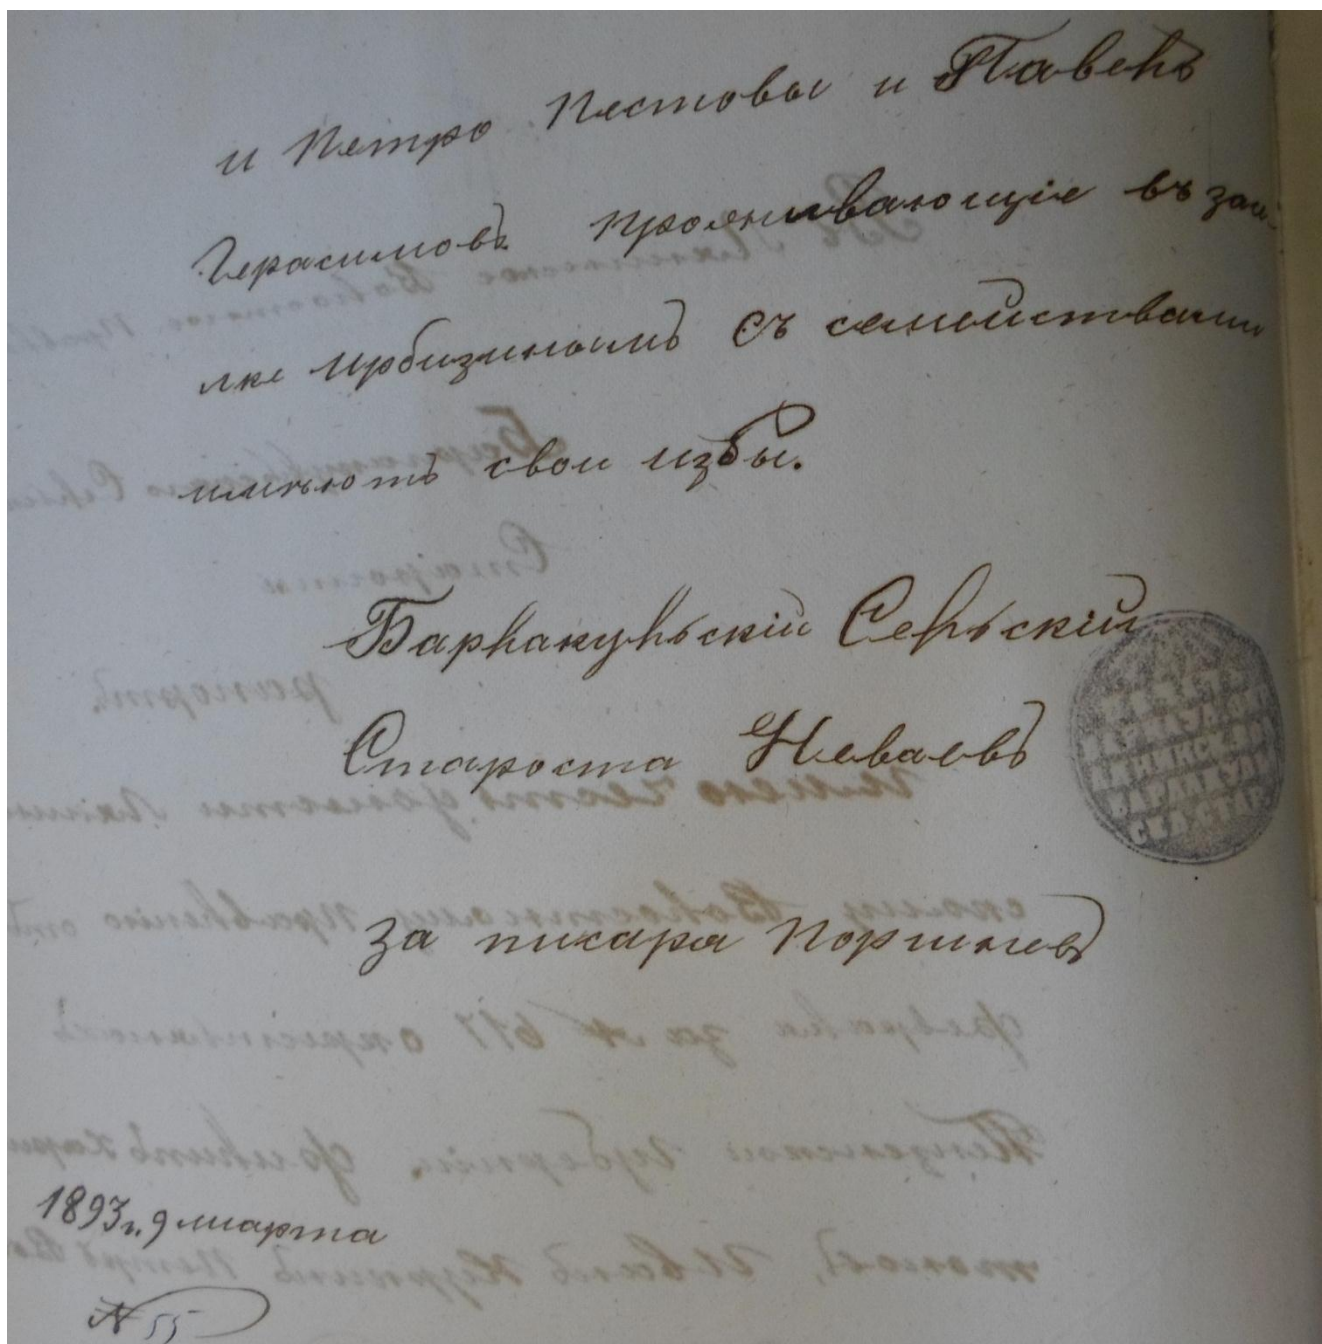 и Петро Пестовы и Павелъ
Герасимовъ проживающіе въ заи-
мке Ирбизиномъ съ семействами
имѣютъ свои избы.
Барлакульскій Сельскій
Староста Неваевъ
За писаря Поршневъ
1893 г. 9 марта
№ 55
ПЕЧАТЬ
БАРНАУЛ
БАРЛАКУЛЬ
СК. СТАР.